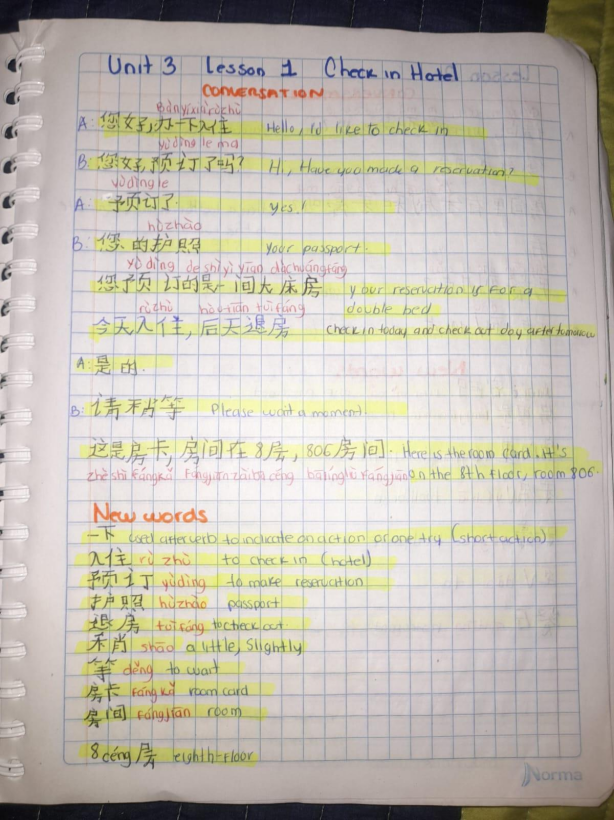 Unit 3 Lesson 1 Check in Hotel
CONVERSATION
A: 您好,办一下入住 Hello, I'd like to check in
yùdìng le ma
B: 您好,预订了吗? Hi, Have you made a reservation?
yùdìng le
A: 预订了. yes!
hùzhào
B: 您的护照 your passport.
yùdìng de shì yì jiān dàchuángfáng
您预订的是一间大床房 your reservation is for a
rùzhù hòutiān tuìfáng double bed
今天入住,后天退房 check in today and check out day after tomorrow
A: 是的.
B: 请稍等 Please wait a moment.
这是房卡,房间在8层,806房间. Here is the room card. It's
zhè shì fángkǎ fángjiān zài bā céng bālíngliù fángjiān on the 8th floor, room 806.
New words
一下 (use) after verb to indicate an action or one try (short action)
入住 rù zhù to check in (hotel)
预订 yùdìng to make reservation
护照 hùzhào passport
退房 tuìfáng to check out
稍 shāo a little, slightly
等 děng to wait
房卡 fángkǎ room card
房间 fángjiān room
8 céng 层 eighth-floor
Norma